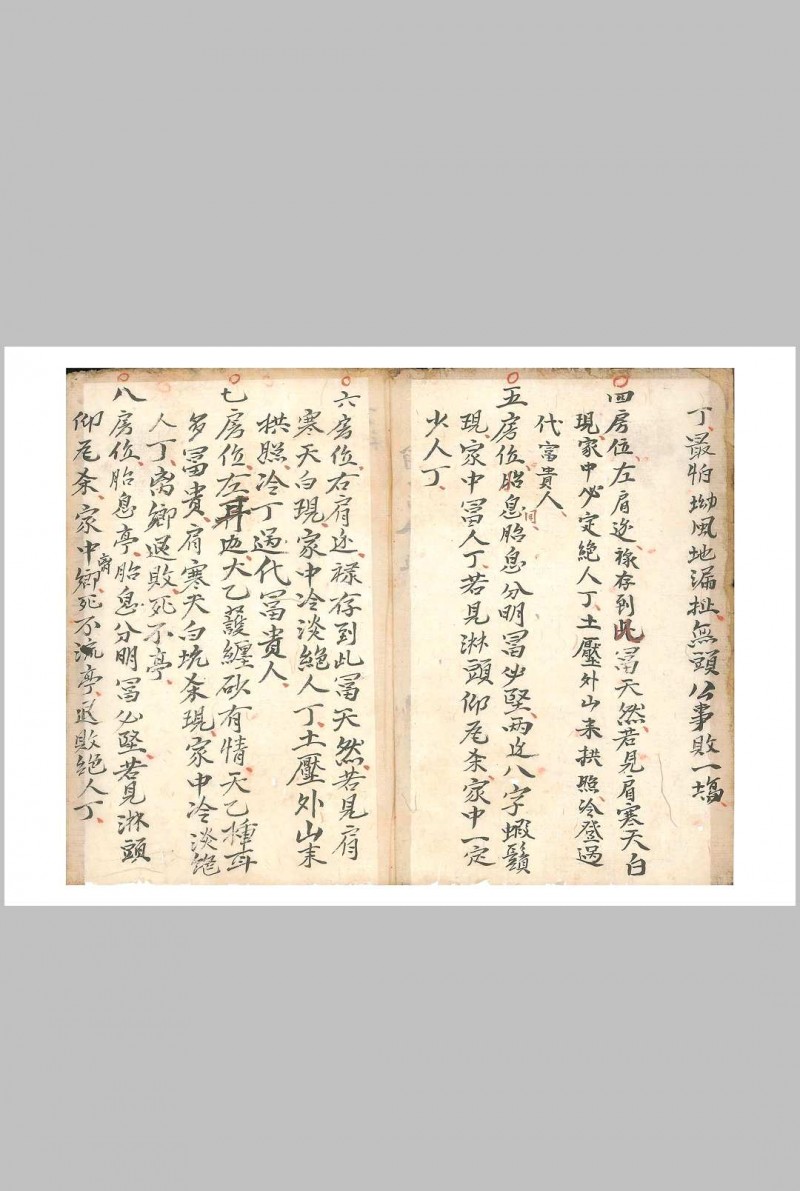 丁、最怕坳風地漏扯、無頭公事敗一塲、
四房位、左肩边、祿存到此冨天然、若見肩寒天白
現、家中必定絶人丁、土壓外山来拱照、冷登過
代富貴人、
五房位、胎息间、胎息分明冨必堅、两边八字蝦鬚
現、家中冨人丁、若見淋頭仰瓦杀、家中一定
少人丁、
六房位、右肩边、祿存到此冨天然、若見肩
寒天白現、家中冷淡絶人丁、土壓外山来
拱照、冷丁過代冨貴人、
七房位、左耳边、天乙䕶纏砂有情、天乙種耳
多冨貴、肩寒天白坑杀現、家中冷淡絶
人丁、离鄉退敗死不亭、
八房位、胎息亭、胎息分明冨必堅、若見淋頭
仰瓦杀、家中离鄉死不流亭、退敗絶人丁、